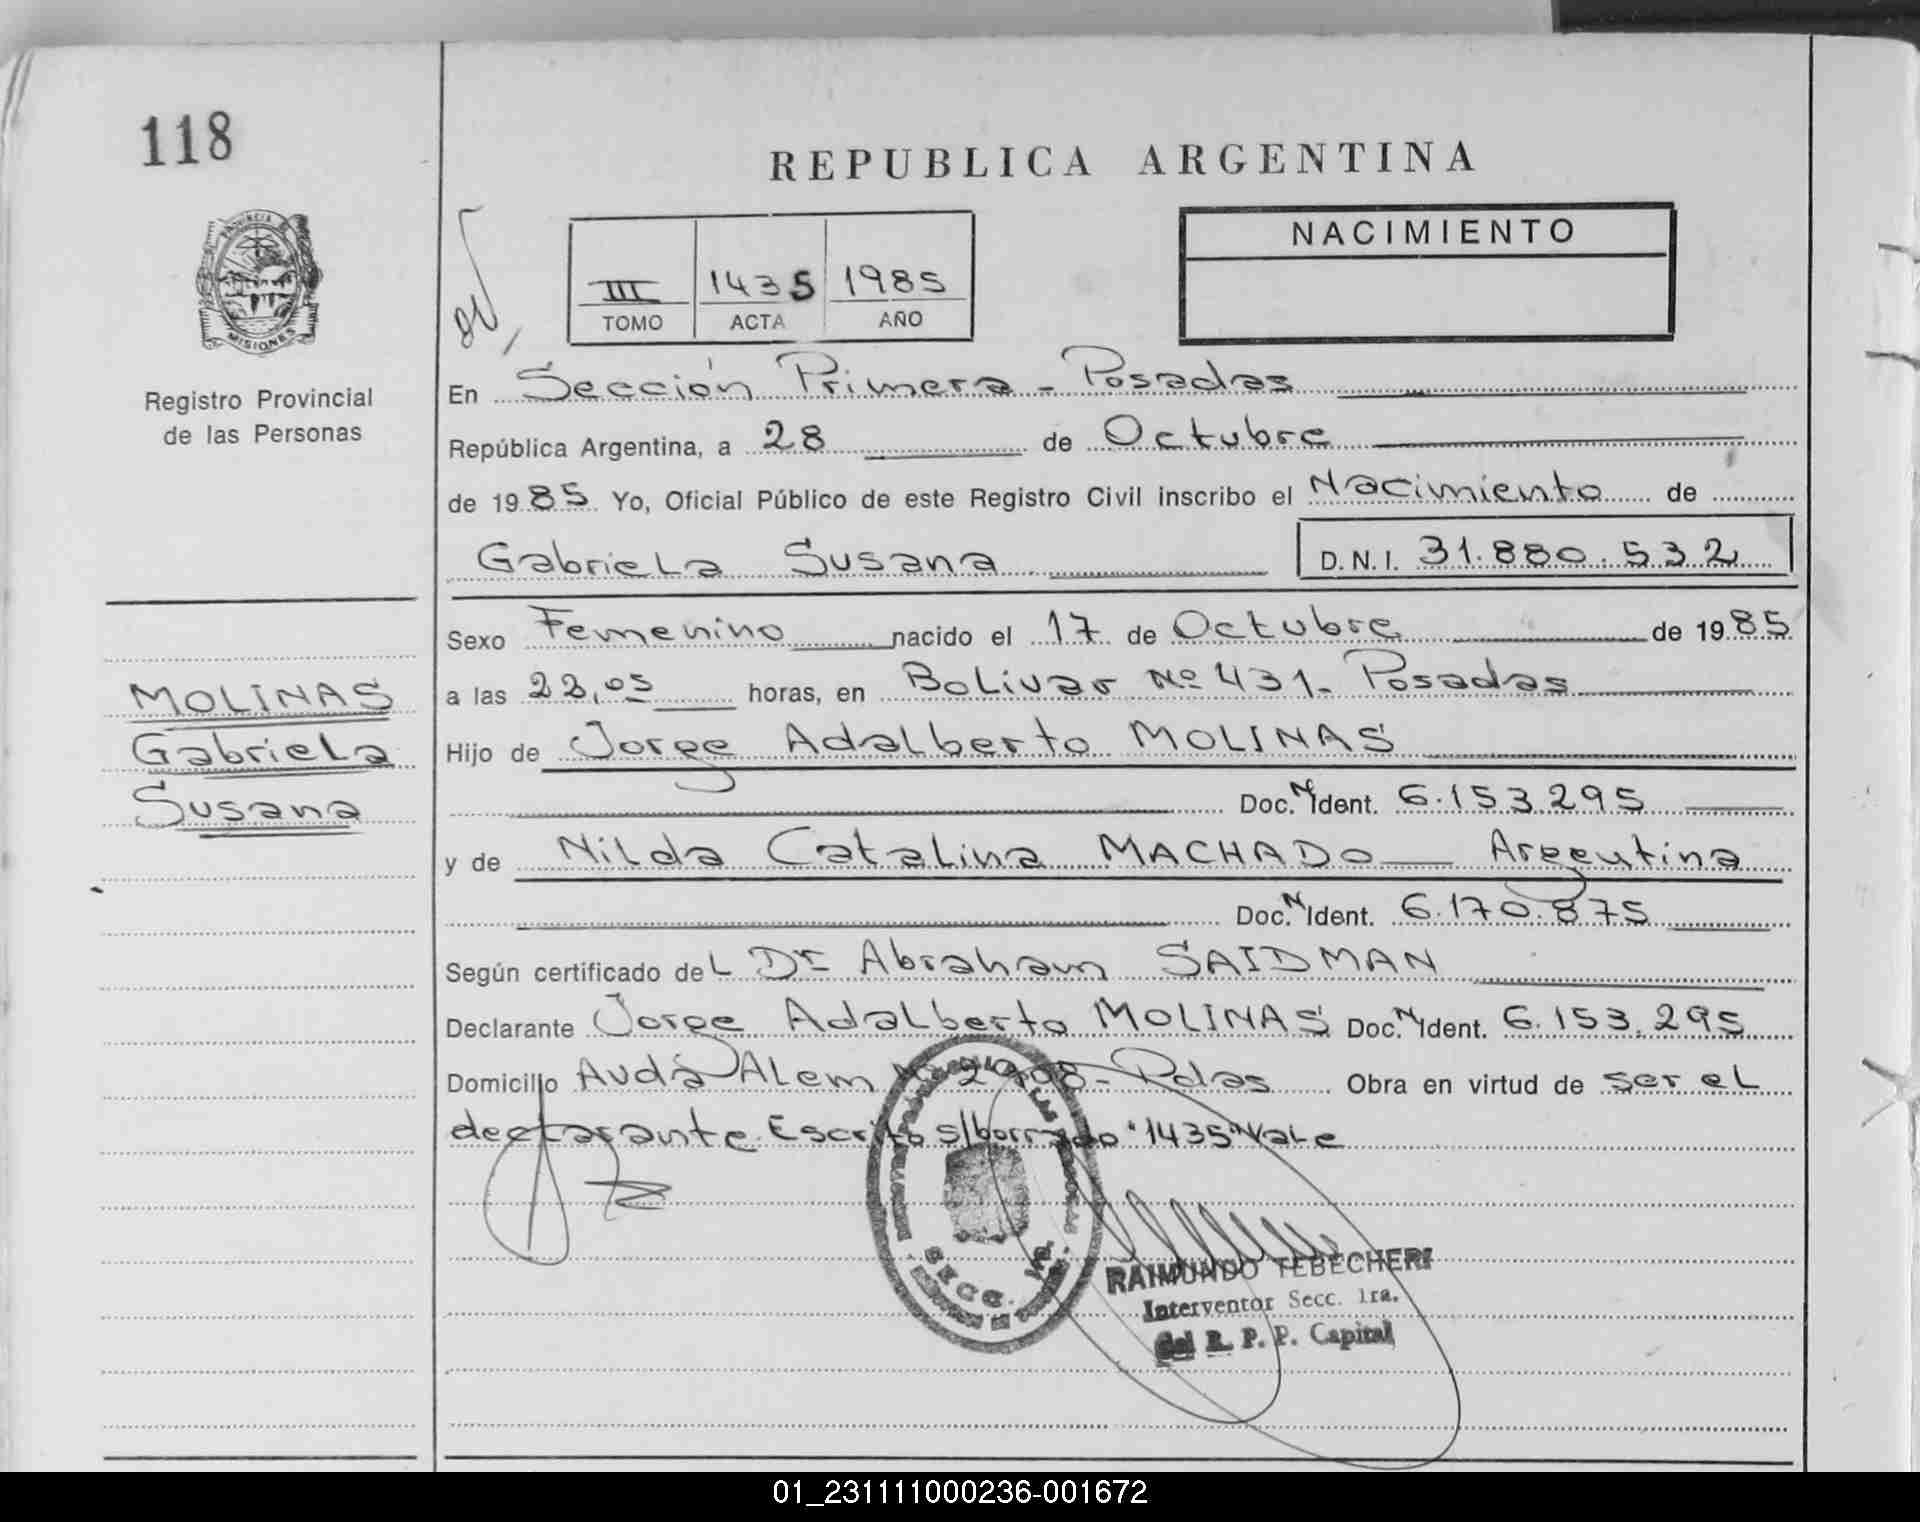 118
REPUBLICA ARGENTINA
PROVINCIA
MISIONES
Registro Provincial
de las Personas
III 1435 1985
TOMO ACTA AÑO
NACIMIENTO
En Sección Primera - Posadas
República Argentina, a 28 de Octubre
de 1985 Yo, Oficial Público de este Registro Civil inscribo el Nacimiento de
Gabriela Susana D.N.I. 31.880.532
Sexo Femenino nacido el 17 de Octubre de 1985
a las 22,05 horas, en Bolivar Nº 431- Posadas
Hijo de Jorge Adalberto MOLINAS
Doc. N Ident. 6.153.295
y de Nilda Catalina MACHADO Argentina
Doc. N Ident. 6.170.875
Según certificado del Dr Abraham SAIDMAN
Declarante Jorge Adalberto MOLINAS Doc. N Ident. 6.153.295
Domicilio Avda Alem Nº 2908- Pdas Obra en virtud de ser el
declarante. Escrito s/borrado "1435" Vale
MOLINAS
Gabriela
Susana
SECC. 1ra.
RAIMUNDO TEBECHERI
Interventor Secc. 1ra.
del R. P. P. Capital
01_231111000236-001672